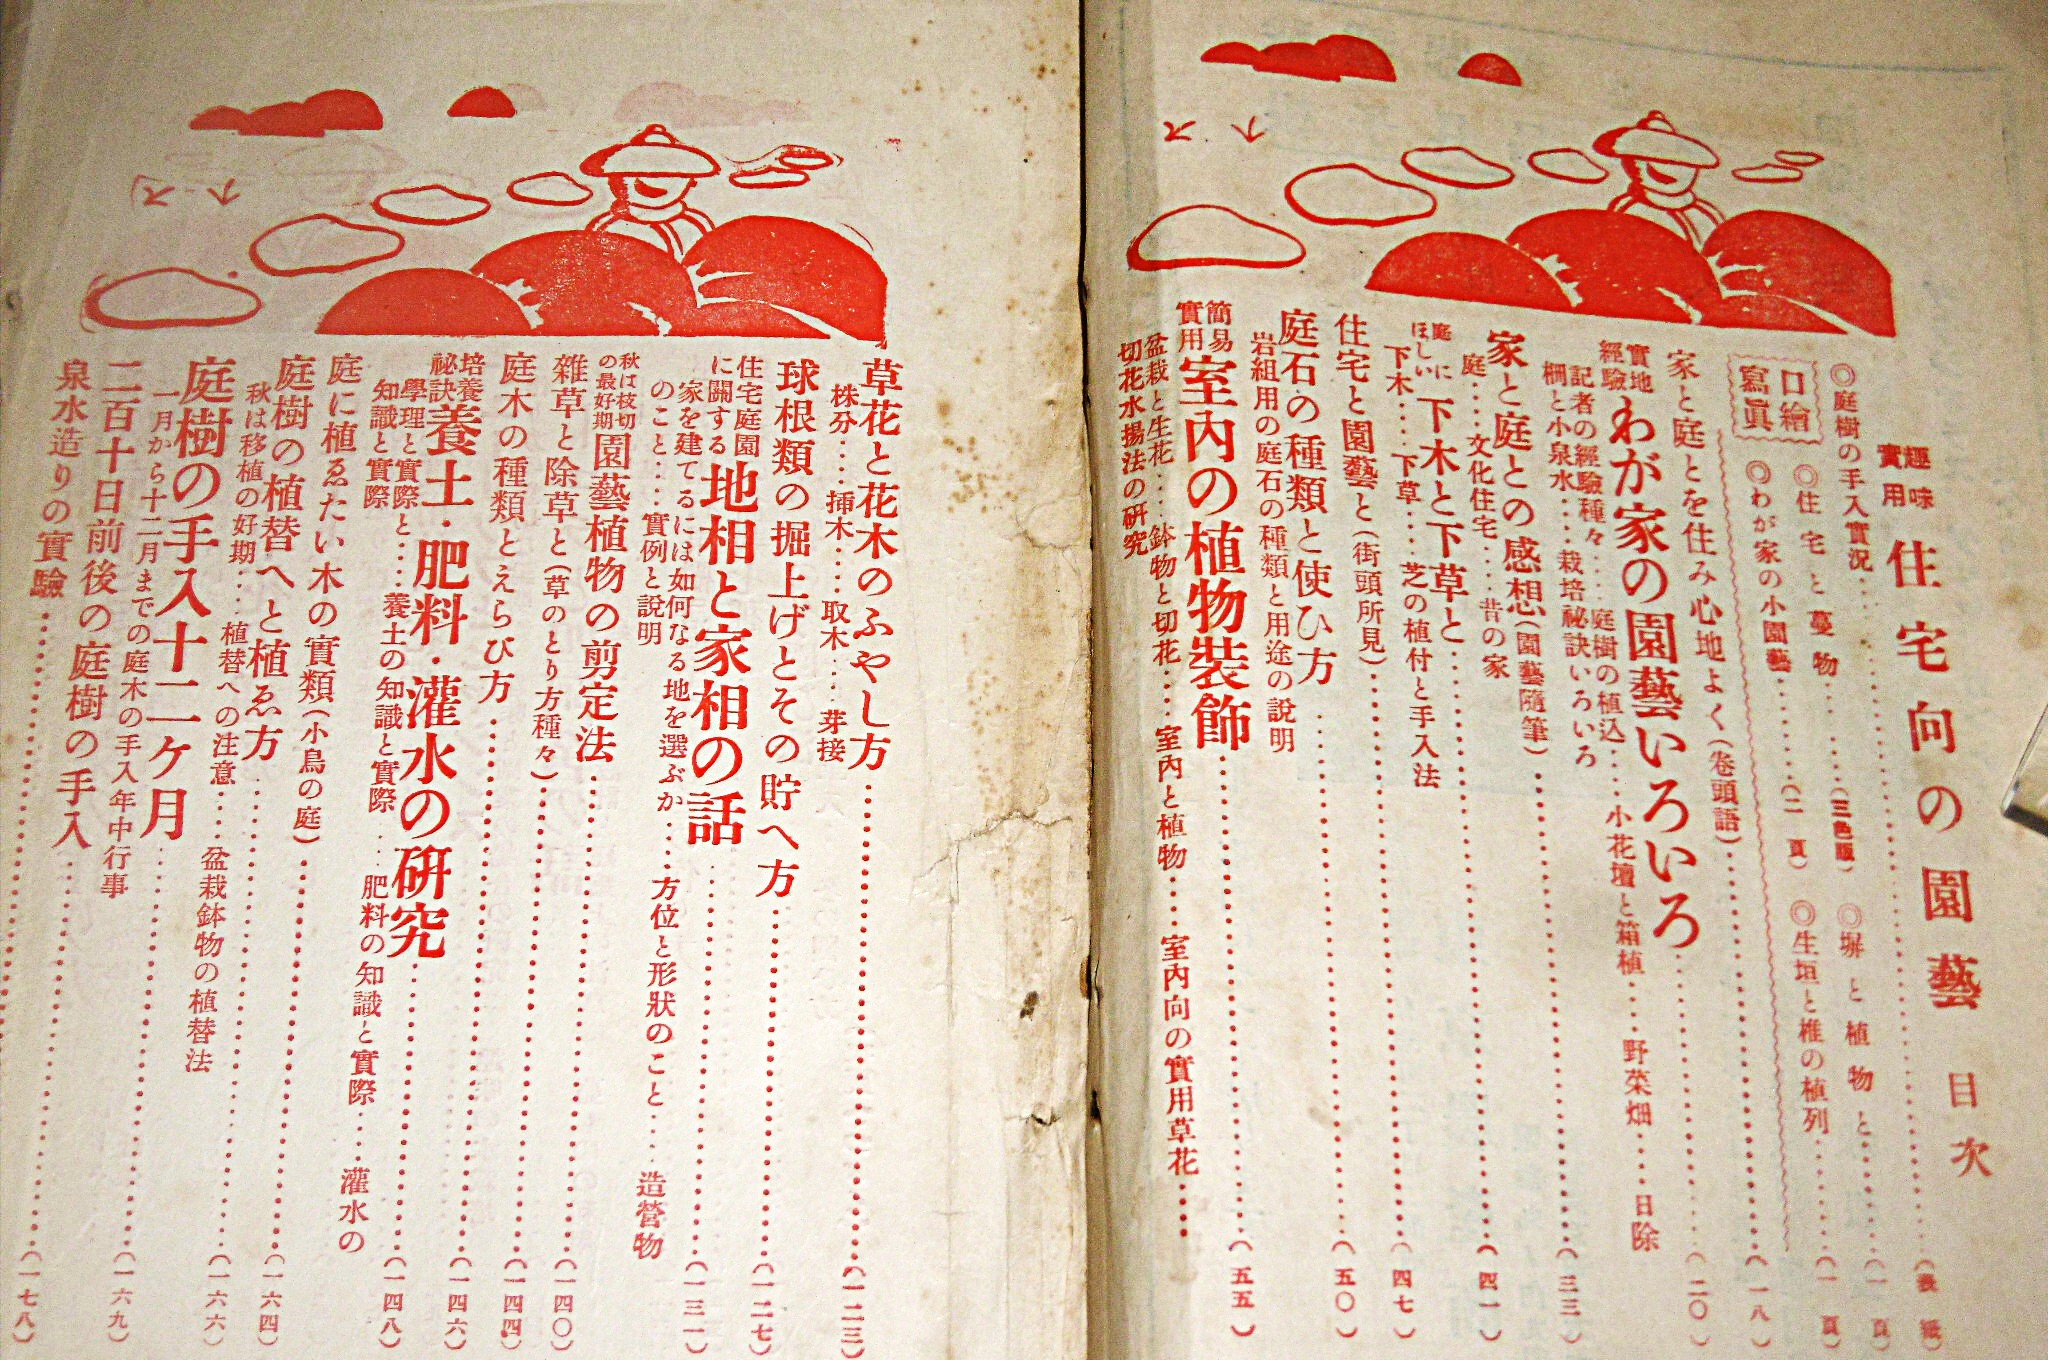 趣味
實用
住宅向の園藝 目次
◎庭樹の手入實況……(表紙)
口繪
寫眞
◎住宅と蔓物……(三色版)
◎塀と植物と……(一頁)
◎わが家の小園藝……(二頁)
◎生垣と椎の植列……(一頁)
家と庭とを住み心地よく(卷頭語)……(一八)
實地
經驗
わが家の園藝いろいろ……(二〇)
記者の經驗種々……庭樹の植込……小花壇と箱植……野菜畑……日除
棚と小泉水……栽培祕訣いろいろ
家と庭との感想(園藝隨筆)……(三三)
庭……文化住宅……昔の家
庭に
ほしい
下木と下草と……(四一)
下木……下草……芝の植付と手入法
住宅と園藝と(街頭所見)……(四七)
庭石の種類と使ひ方……(五〇)
岩組用の庭石の種類と用途の說明
簡易
實用
室內の植物裝飾……(五五)
盆栽と生花……鉢物と切花……室內と植物……室內向の實用草花……
切花水揚法の硏究
草花と花木のふやし方……(一二三)
株分……揷木……取木……芽接
球根類の掘上げとその貯へ方……(一二七)
住宅庭園
に關する
地相と家相の話……(一三一)
家を建てるには如何なる地を選ぶか……方位と形狀のこと……造營物
のこと……實例と說明
秋は枝切
の最好期
園藝植物の剪定法……(一四〇)
雜草と除草と(草のとり方種々)……(一四四)
庭木の種類とえらび方……(一四六)
培養
祕訣
養土・肥料・灌水の硏究……(一四八)
學理と實際と……養土の知識と實際……肥料の知識と實際……灌水の
知識と實際
庭に植ゑたい木の實類(小鳥の庭)……(一六四)
庭樹の植替へと植ゑ方……(一六六)
秋は移植の好期……植替への注意……盆栽鉢物の植替法
庭樹の手入十二ヶ月……(一六九)
一月から十二月までの庭木の手入年中行事
二百十日前後の庭樹の手入……(一七八)
泉水造りの實驗……